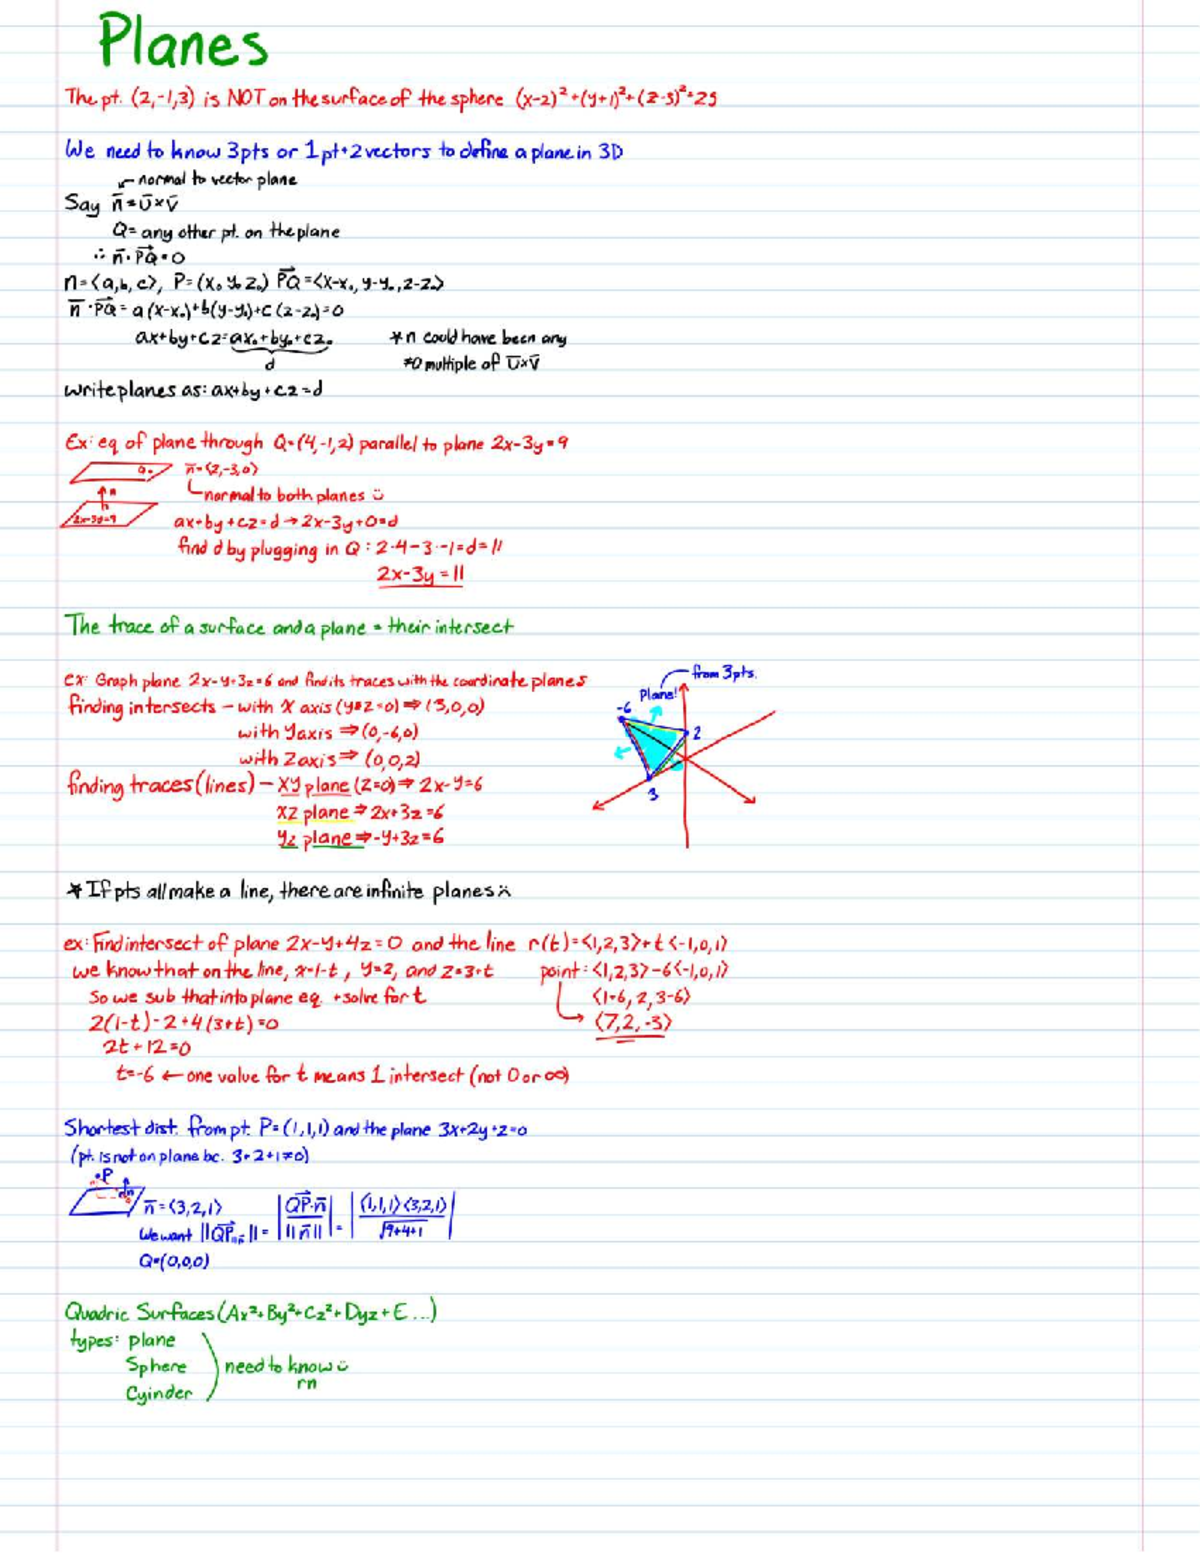 Planes
The pt. (2,-1,3) is NOT on the surface of the sphere (x-2)²+(y+1)²+(z-3)²=25
We need to know 3pts or 1pt+2vectors to define a plane in 3D
normal to vector plane
Say n̄=ū×v̄
Q= any other pt. on the plane
∴ n̄·PQ=0
n=⟨a,b,c⟩, P=(x₀ y₀ z₀) PQ=⟨x-x₀, y-y₀, z-z₀⟩
n̄·PQ = a(x-x₀)+b(y-y₀)+c(z-z₀)=0
ax+by+cz=ax₀+by₀+cz₀ *n could have been any
d ≠0 multiple of ū×v̄
write planes as: ax+by+cz=d
Ex: eq of plane through Q=(4,-1,2) parallel to plane 2x-3y=9
Q. n̄=⟨2,-3,0⟩
n normal to both planes :)
2x-3y=9 ax+by+cz=d → 2x-3y+0=d
find d by plugging in Q: 2·4-3·-1=d=11
2x-3y=11
The trace of a surface and a plane = their intersect
ex: Graph plane 2x-y+3z=6 and find its traces with the coordinate planes
from 3pts.
Plane!
-6
2
3
finding intersects - with X axis (y=z=0) ⇒ (3,0,0)
with Y axis ⇒ (0,-6,0)
with Z axis ⇒ (0,0,2)
finding traces (lines) - XY plane (z=0) ⇒ 2x-y=6
XZ plane ⇒ 2x+3z=6
YZ plane ⇒ -y+3z=6
*If pts all make a line, there are infinite planes :(
ex: Find intersect of plane 2x-y+4z=0 and the line r(t)=⟨1,2,3⟩+t⟨-1,0,1⟩
we know that on the line, x=1-t, y=2, and z=3+t point: ⟨1,2,3⟩-6⟨-1,0,1⟩
So we sub that into plane eq. + solve for t ⟨1+6, 2, 3-6⟩
2(1-t)-2+4(3+t)=0 ⟨7,2,-3⟩
2t+12=0
t=-6 ← one value for t means 1 intersect (not 0 or ∞)
Shortest dist. from pt. P=(1,1,1) and the plane 3x+2y+z=0
(pt. is not on plane bc. 3+2+1≠0)
•P
n̄=⟨3,2,1⟩ |QP·n̄ / ||n̄|| | = |⟨1,1,1⟩⟨3,2,1⟩ / √9+4+1|
We want ||QP∥n̄|| =
Q=(0,0,0)
Quadric Surfaces (Ax²+By²+Cz²+Dyz+E...)
types: plane
Sphere need to know :)
rn
Cyinder